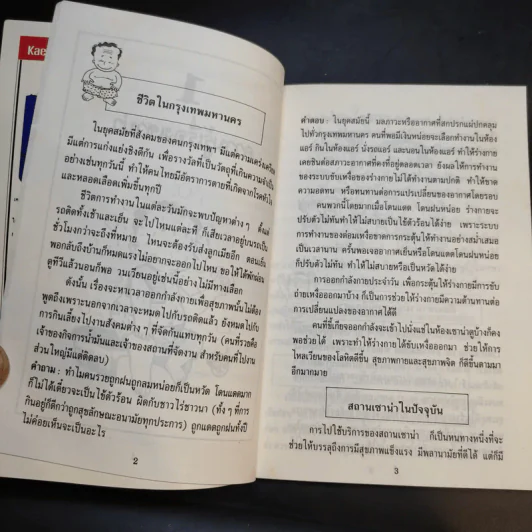 Kae
ชีวิตในกรุงเทพมหานคร
ในยุคสมัยที่สังคมของคนกรุงเทพฯ มีแต่ความเคร่งเครียด
มีแต่การแก่งแย่งชิงดีกัน เพื่อรางวัลที่เป็นวัตถุที่เกินความจำเป็น
อย่างเช่นทุกวันนี้ ทำให้คนไทยมีอัตราการตายที่เกิดจากโรคหัวใจ
และหลอดเลือดเพิ่มขึ้นทุกปี
ชีวิตการทำงานในแต่ละวันมักจะพบปัญหาต่าง ๆ ตั้งแต่
รถติดทั้งเช้าและเย็น จะไปไหนแต่ละที ก็เสียเวลาอยู่บนรถเป็น
ชั่วโมงกว่าจะถึงที่หมาย ไหนจะต้องรับส่งลูกเมียอีก ตอนเย็น
พอกลับถึงบ้านก็หมดแรงไม่อยากจะออกไปไหน ขอให้ได้พักผ่อน
ดูทีวีแล้วนอนก็พอ วนเวียนอยู่เช่นนี้อย่างไม่มีทางเลือก
ดังนั้น เรื่องจะหาเวลาออกกำลังกายเพื่อสุขภาพนั้นไม่ต้อง
พูดถึงเพราะนอกจากเวลาจะหมดไปกับรถติดแล้ว ยังหมดไปกับ
การกินเลี้ยงไปงานสังคมต่าง ๆ ที่จัดกันแทบทุกวัน (คนที่รวยคือ
เจ้าของกิจการน้ำเมาและเจ้าของสถานที่จัดงาน สำหรับคนที่ไปงาน
ส่วนใหญ่มีแต่ติดลบ)
คำถาม : ทำไมคนรวยถูกฝนถูกลมหน่อยก็เป็นหวัด โดนแดดมาก
ก็ไม่ได้เดี๋ยวจะเป็นไข้ตัวร้อน ผิดกับชาวไร่ชาวนา (ทั้ง ๆ ที่การ
กินอยู่ก็ดีกว่าถูกสุขลักษณะอนามัยทุกประการ) ถูกแดดถูกฝนทั้งปี
ไม่ค่อยเห็นจะเป็นอะไร
2
คำตอบ : ในยุคสมัยนี้ มลภาวะหรืออากาศที่สกปรกแม่ปกคลุม
ไปทั่วกรุงเทพมหานคร คนที่พอมีเงินหน่อยจะเลือกทำงานในห้อง
แอร์ กินในห้องแอร์ นั่งรถแอร์ และนอนในห้องแอร์ ทำให้ร่างกาย
เคยชินต่อสภาวะอากาศที่คงที่อยู่ตลอดเวลา ยังผลให้การทำงาน
ของระบบขับเหงื่อของร่างกายไม่ได้ทำงานตามปกติ ทำให้ขาด
ความอดทน หรือทนทานต่อการแปรเปลี่ยนของอากาศโดยรอบ
คนพวกนี้โดยมากเมื่อโดนแดด โดนฝนหน่อย ร่างกายจะ
ปรับตัวไม่ทันทำให้ไม่สบายเป็นไข้ตัวร้อนได้ง่าย เพราะระบบ
การทำงานของต่อมเหงื่อขาดการกระตุ้นให้ทำงานอย่างสม่ำเสมอ
เป็นเวลานาน ครั้นพอเจออากาศเย็นหรือโดนแดดโดนฝนหน่อย
ก็ปรับตัวไม่ทัน ทำให้ไม่สบายหรือเป็นหวัดได้ง่าย
การออกกำลังกายประจำวัน เพื่อกระตุ้นให้ร่างกายมีการขับ
ถ่ายเหงื่อออกมาบ้าง ก็เป็นการช่วยให้ร่างกายมีความต้านทานต่อ
การเปลี่ยนแปลงของอากาศได้ดี
คนที่ขี้เกียจออกกำลังจะเข้าไปนั่งแช่ในห้องเซาน่าดูบ้างก็คง
พอช่วยได้ เพราะทำให้ร่างกายได้ขับเหงื่อออกมา ช่วยให้การ
ไหลเวียนของโลหิตดีขึ้น สุขภาพกายและสุขภาพจิต ก็ดีขึ้นตามมา
อีกมากมาย
สถานเซาน่าในปัจจุบัน
การไปใช้บริการของสถานเซาน่า ก็เป็นหนทางหนึ่งที่จะ
ช่วยให้บรรลุถึงการมีสุขภาพแข็งแรง มีพลานามัยที่ดีได้ แต่ก็มี
3